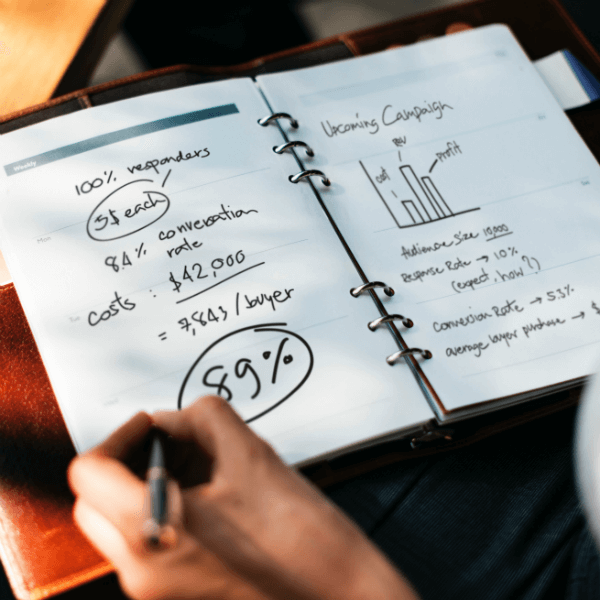 Weekly
100% responders
5$ each
84% conversation
rate
costs : $42,000
= 7,843 / buyer
89%
Upcoming Campaign
cost
rev
profit
Audience Size 10,000
Response Rate → 10%
(expect, how?)
Conversion Rate → 53%
average buyer purchase → $